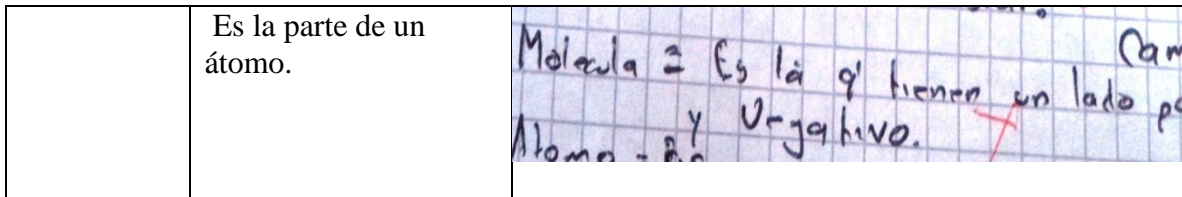 Es la parte de un
átomo.
Molecula = Es la q' tienen un lado
y Negativo.
Atomo =